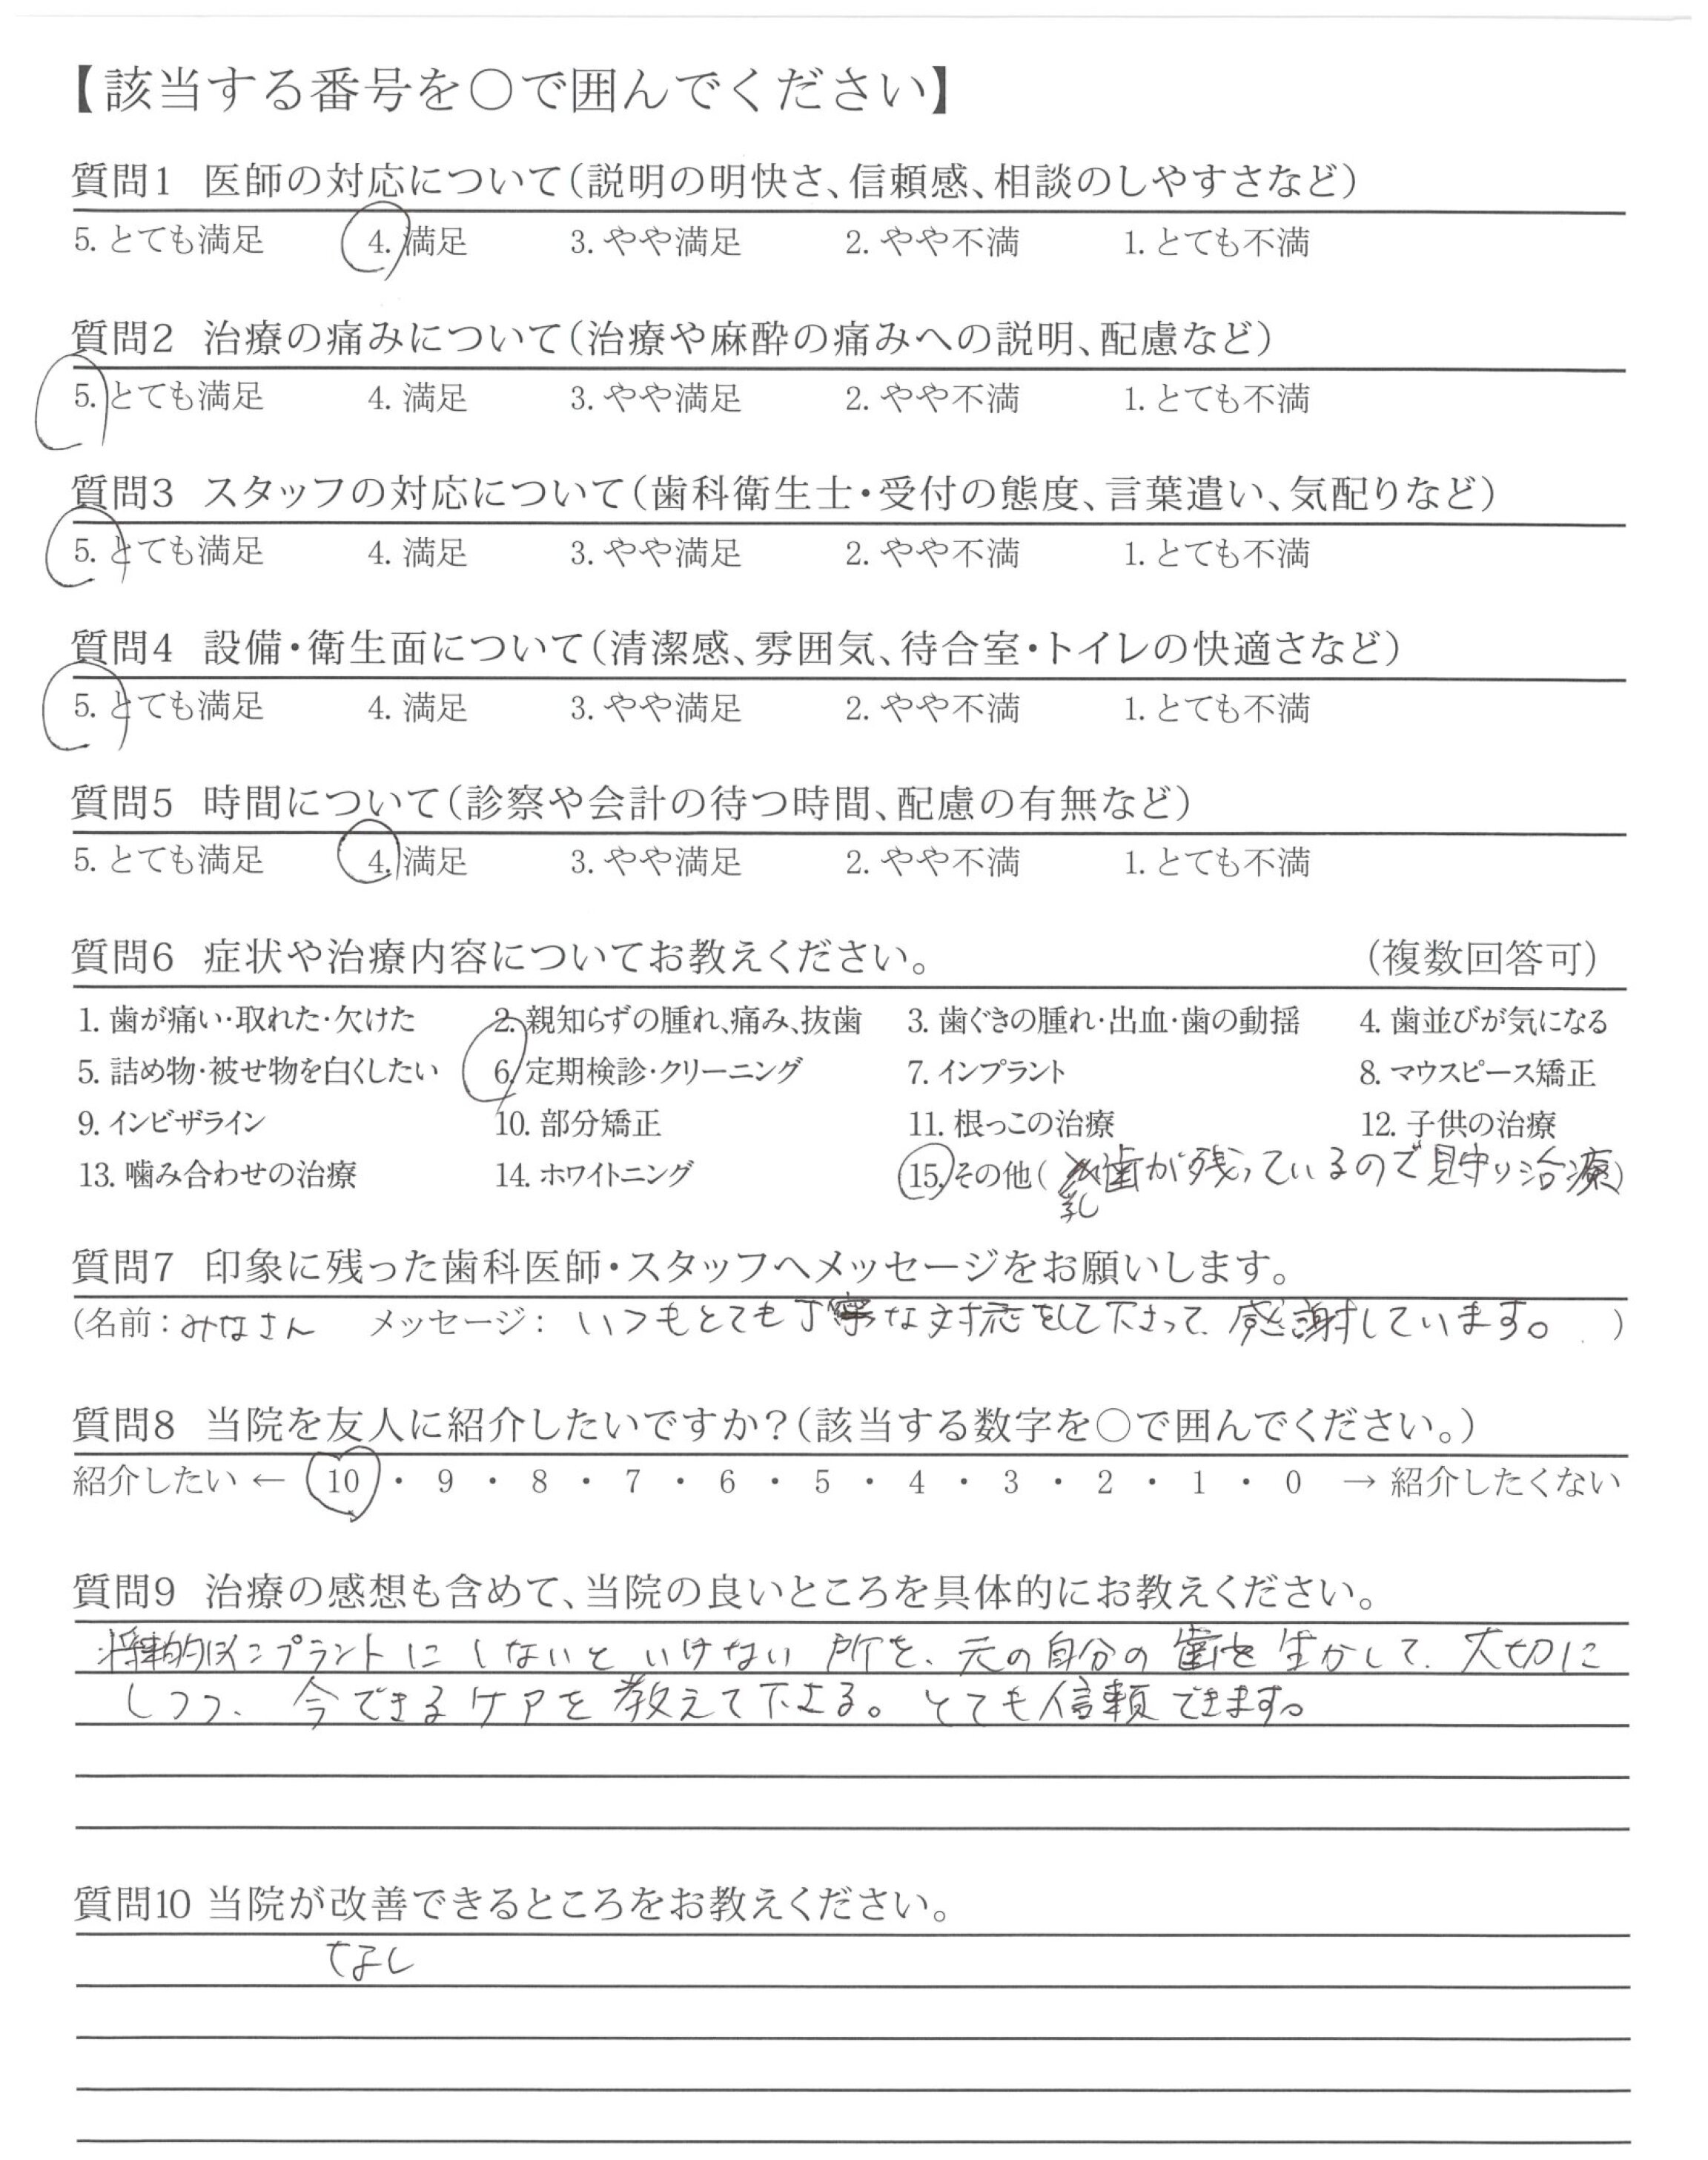 【該当する番号を○で囲んでください】
質問1 医師の対応について(説明の明快さ、信頼感、相談のしやすさなど)
5. とても満足 4. 満足 3. やや満足 2. やや不満 1. とても不満
質問2 治療の痛みについて(治療や麻酔の痛みへの説明、配慮など)
5. とても満足 4. 満足 3. やや満足 2. やや不満 1. とても不満
質問3 スタッフの対応について(歯科衛生士・受付の態度、言葉遣い、気配りなど)
5. とても満足 4. 満足 3. やや満足 2. やや不満 1. とても不満
質問4 設備・衛生面について(清潔感、雰囲気、待合室・トイレの快適さなど)
5. とても満足 4. 満足 3. やや満足 2. やや不満 1. とても不満
質問5 時間について(診察や会計の待つ時間、配慮の有無など)
5. とても満足 4. 満足 3. やや満足 2. やや不満 1. とても不満
質問6 症状や治療内容についてお教えください。 (複数回答可)
1. 歯が痛い・取れた・欠けた 2. 親知らずの腫れ、痛み、抜歯 3. 歯ぐきの腫れ・出血・歯の動揺 4. 歯並びが気になる
5. 詰め物・被せ物を白くしたい 6. 定期検診・クリーニング 7. インプラント 8. マウスピース矯正
9. インビザライン 10. 部分矯正 11. 根っこの治療 12. 子供の治療
13. 噛み合わせの治療 14. ホワイトニング 15. その他( 乳歯が残っているので見守り治療)
質問7 印象に残った歯科医師・スタッフへメッセージをお願いします。
(名前：みなさん メッセージ： いつもとても丁寧な対応をして下さって、感謝しています。 )
質問8 当院を友人に紹介したいですか？(該当する数字を○で囲んでください。)
紹介したい ← 10 ・ 9 ・ 8 ・ 7 ・ 6 ・ 5 ・ 4 ・ 3 ・ 2 ・ 1 ・ 0 → 紹介したくない
質問9 治療の感想も含めて、当院の良いところを具体的にお教えください。
将来的にはインプラントにしないといけない所を、元の自分の歯を生かして、大切に
しつつ、今できるケアを教えて下さる。とても信頼できます。
質問10 当院が改善できるところをお教えください。
なし